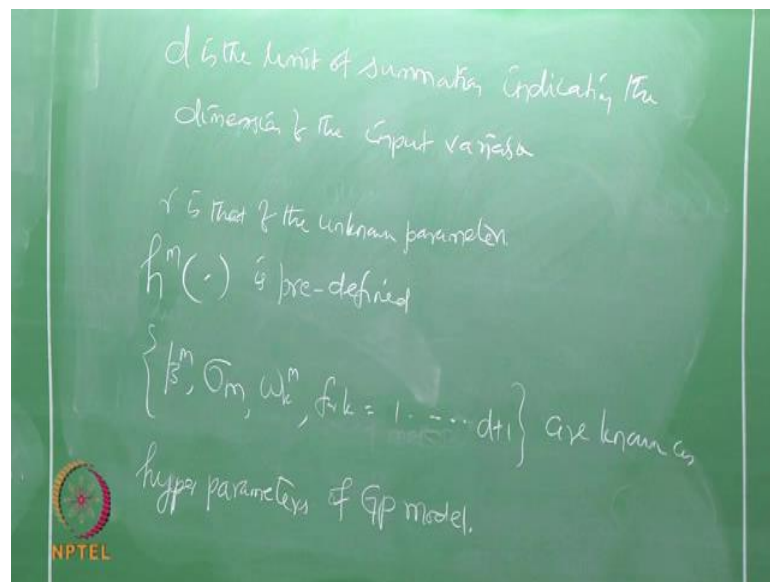 d is the limit of summation indicating the
dimension of the input variable
r is that of the unknown parameters
h^m(·) is pre-defined
{β^m, σ_m, ω_k^m, for k = 1 ..... d+1} are known as
hyper parameters of GP model.
NPTEL